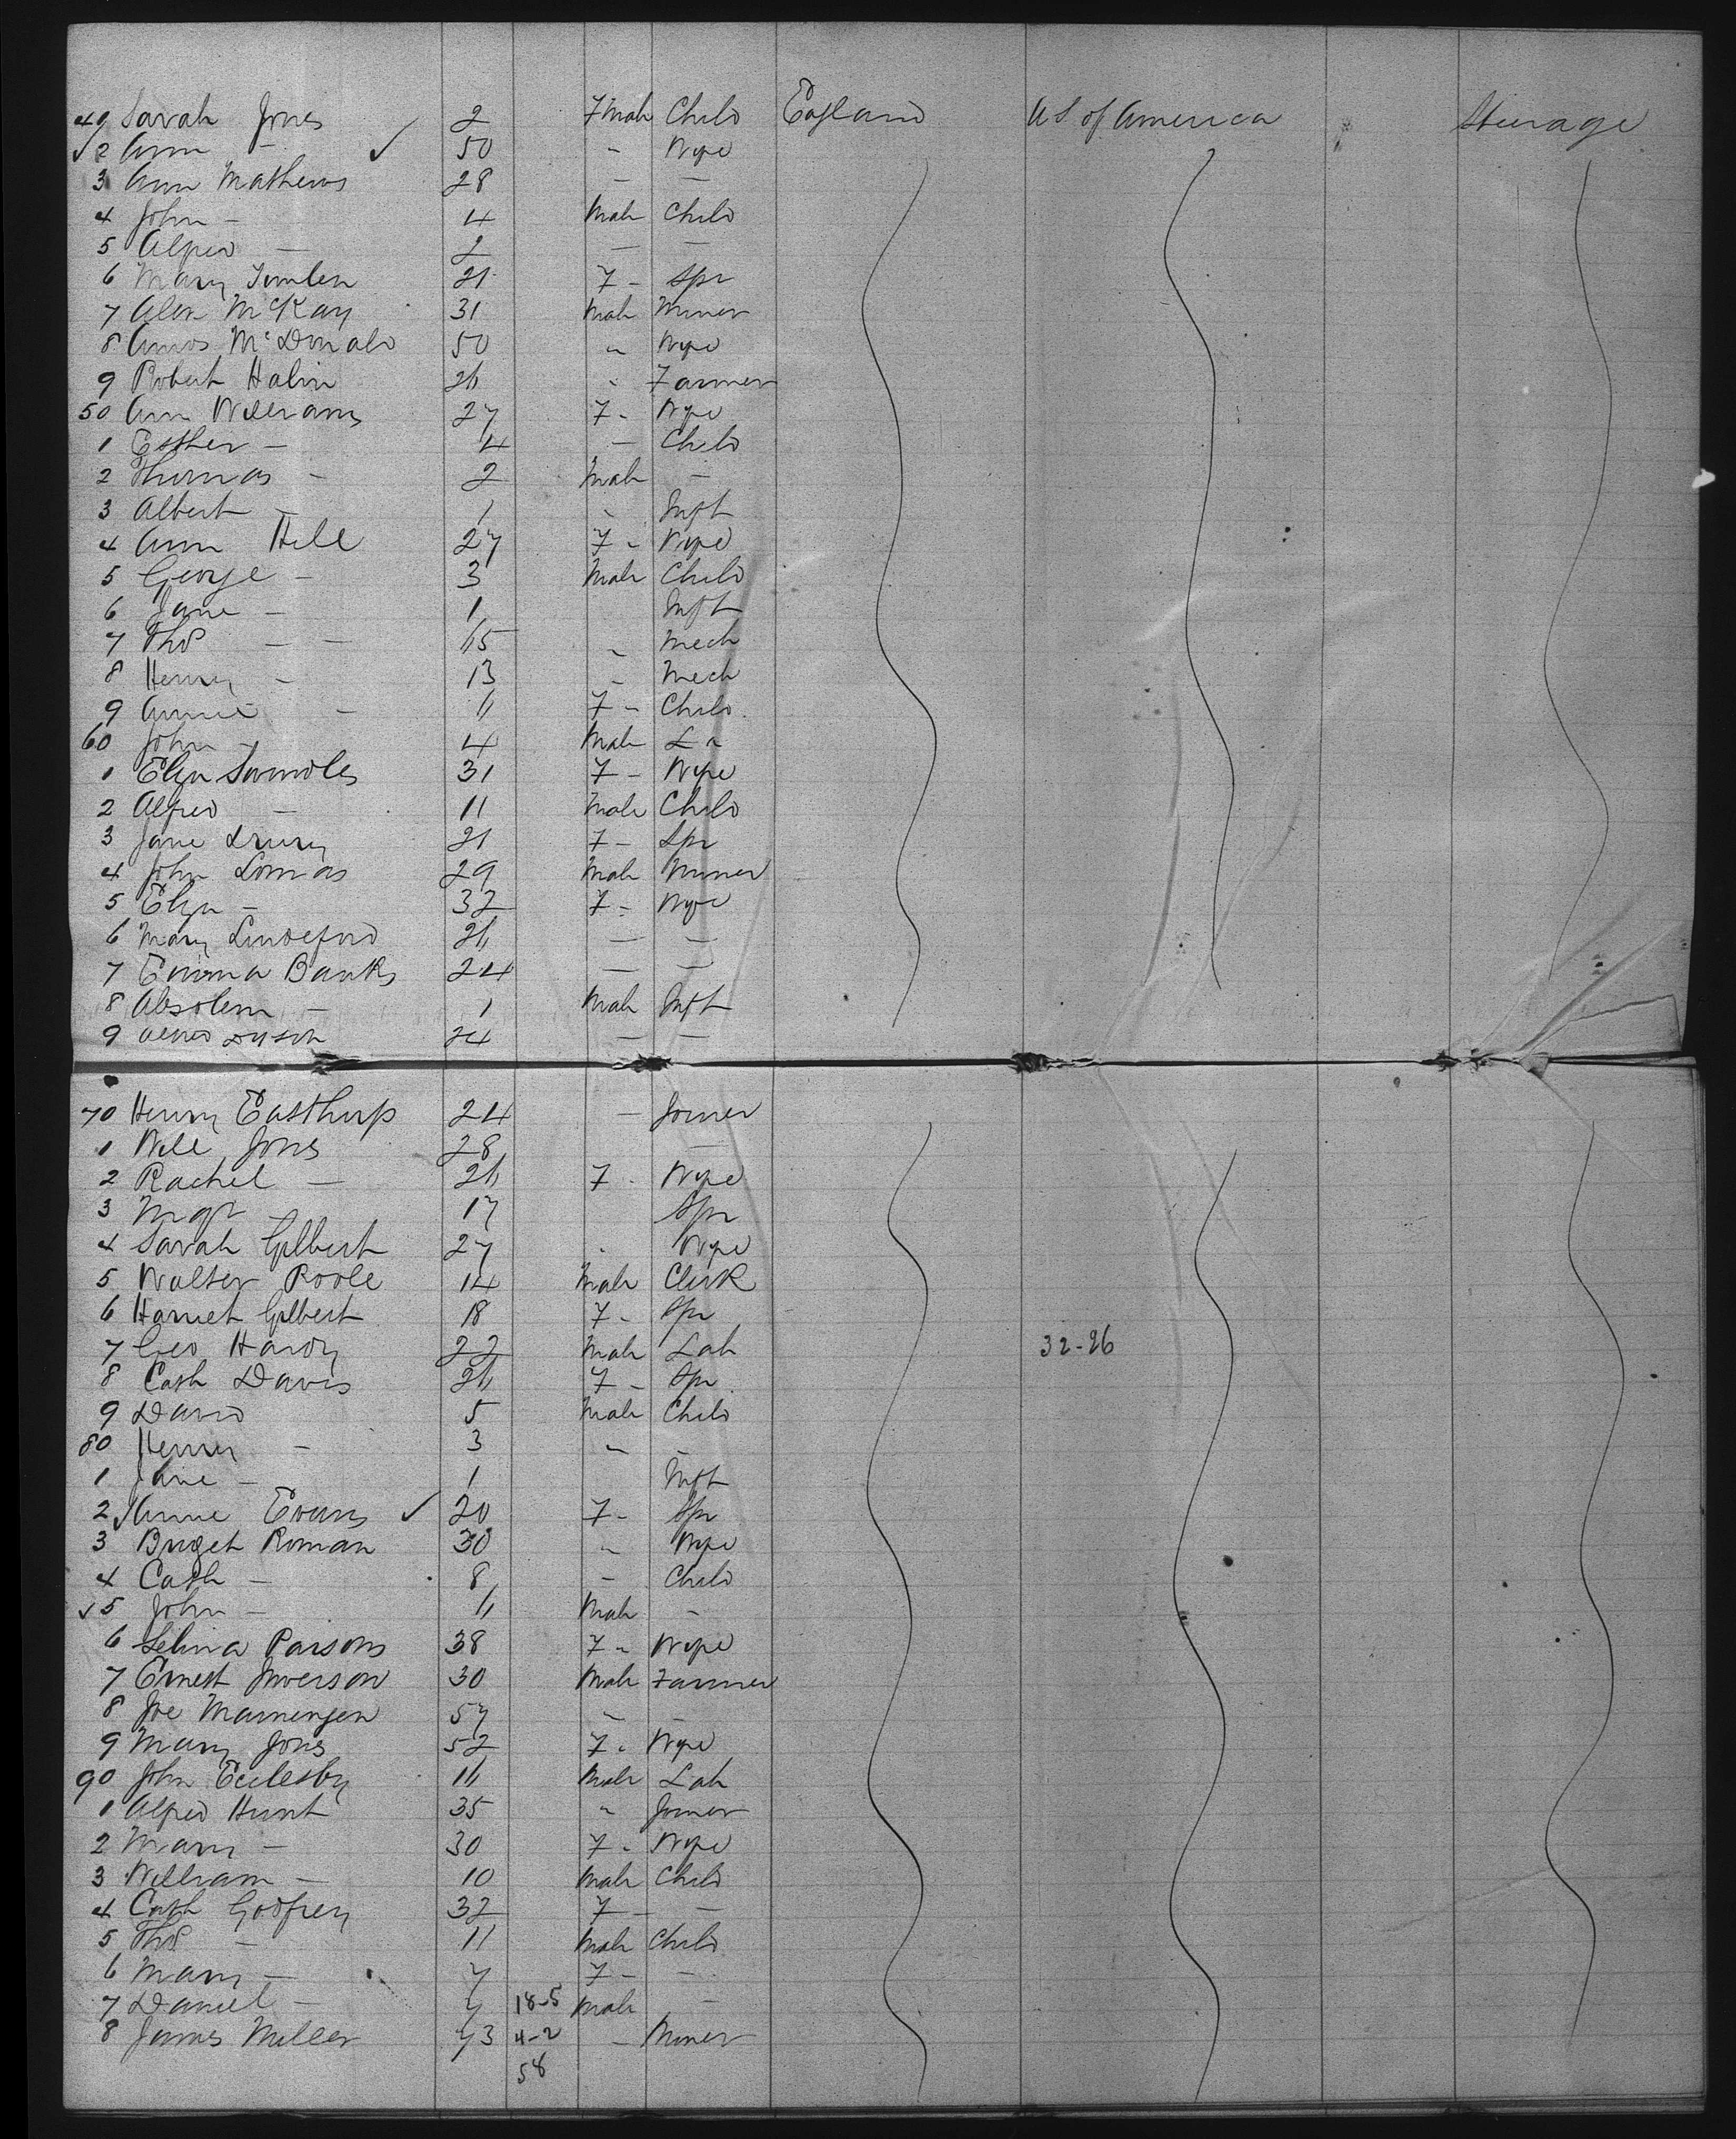 49 Sarah Jones 2 Female Child England U S of America Steerage
2 Ann - 50 " Wife
3 Ann Mathews 28 — —
4 John - 4 Male Child
5 Alfred — 2 — —
6 Mary 21 F - Spr
7 Alex McKay 31 Male Miner
8 Amos McDonald 50 " Wife
9 Robert 26 " Farmer
50 Ann Williams 27 F - Wife
1 Esther - 4 — Child
2 Thomas - 2 Male —
3 Albert - 1 " Inft
4 Ann Hill 27 F - Wife
5 George - 3 Male Child
6 Jane - 1 Inft
7 Thos - - 15 " Mech
8 Henry - 13 " Mech
9 Annie - 11 F - Child
60 John - 4 Male
1 Eliza 31 F - Wife
2 Alfred — 11 Male Child
3 Jane Drury 21 F - Spr
4 John Lomas 29 Male Miner
5 Eliza - 32 F - Wife
6 Mary 26 — —
7 Emma Banks 24 — —
8 Absolem - 1 Male Inft
9 Dyson 24 — —
70 Henry 24 — Joiner
1 Will Jones 28 —
2 Rachel — 26 F - Wife
3 Mgt - 17 Spr
4 Sarah Gilbert 27 " Wife
5 Walter Poole 14 Male Clerk
6 Harriet Gilbert 18 F - Spr
7 Geo Hardy 22 Male Lab 32-26
8 Cath Davis 26 F - Spr
9 David 5 Male Child
80 Henry - 3 " -
1 Jane - 1 Inft
2 Anne Evans 20 F - Spr
3 Bridget Roman 30 " Wife
4 Cath - 8 - Child
5 John - 11 Male -
6 Selina Parsons 38 F " Wife
7 Ernest Iverson 30 Male Farmer
8 Joe 57 - -
9 Mary Jones 52 F - Wife
90 John Ecclesby 16 Male Lab
1 Alfred Hunt 35 " Joiner
2 Mary - 30 F - Wife
3 William - 10 Male Child
4 Cath Godfrey 32 F - —
5 Thos - 11 Male Child
6 Mary - 7 F - -
7 Daniel - 7 18-5 Male —
8 James Miller 43 4-2 - Miner
58